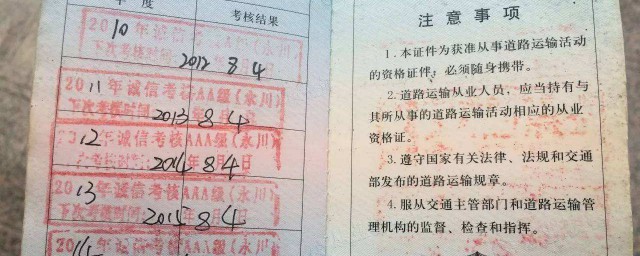 度 考核结果
2010年诚信考核AAA级(永川)
下次考核时间:2012年8月4日
2011年诚信考核AA级(永川)
下次考核时间:2013年8月4日
2012年诚信考核AAA级(永川)
下次考核时间:2014年8月4日
2013年诚信考核AAA级(永川)
下次考核时间:2015年8月4日
年诚信考核AAA级(永川)
注意事项
1.本证件为获准从事道路运输活动
的资格证件，必须随身携带。
2.道路运输从业人员，应当持有与
其所从事的道路运输活动相应的从业
资格证。
3.遵守国家有关法律、法规和交通
部发布的道路运输规章。
4.服从交通主管部门和道路运输管
理机构的监督、检查和指挥。